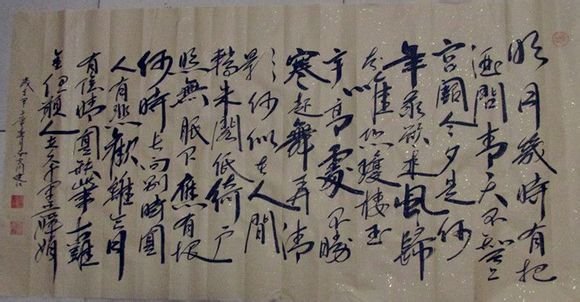 明月幾時有把
酒問青天不知上
宮闕今夕是何
年我欲乘風歸
去唯恐瓊樓玉
宇高處不勝
寒起舞弄清
影何似在人間
轉朱閣低綺戶
照無眠不應有恨
何時長向別時圓
人有悲歡離合月
有陰晴圓缺事古難
全但願人長久千里共嬋娟